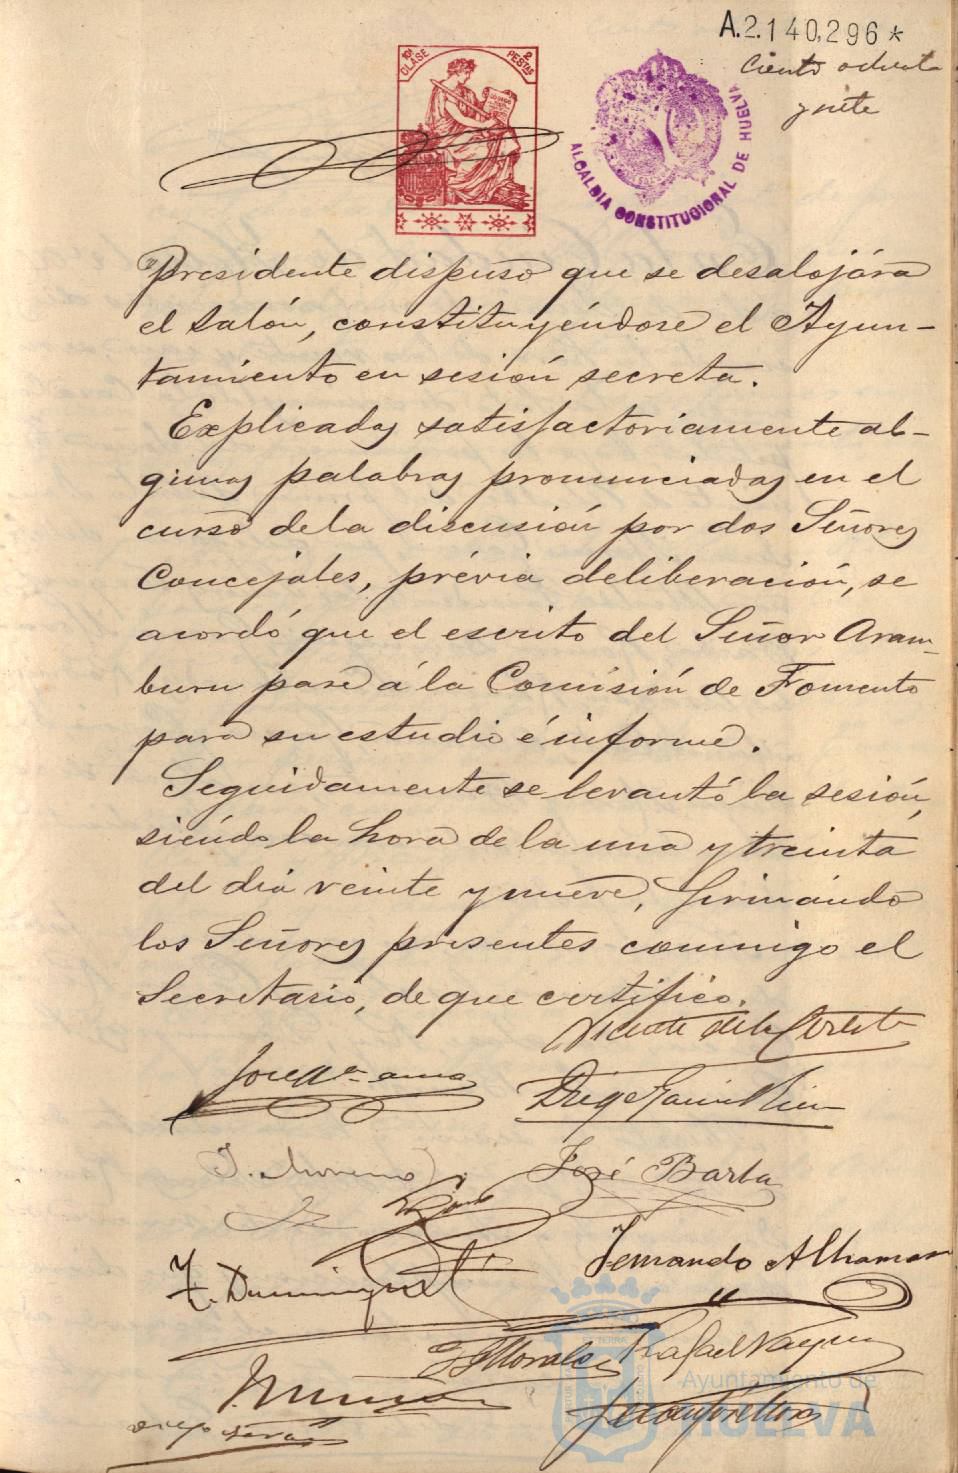 A.2.140,296*
Ciento ochenta
y siete
10ª CLASE
2 PESETAS
ALCALDIA CONSTITUCIONAL DE HUELVA
Presidente dispuso que se desalojára
el salón, constituyéndose el Ayun-
tamiento en sesión secreta.
Explicadas satisfactoriamente al-
gunas palabras pronunciadas en el
curso de la discusión por dos Señores
Concejales, prévia deliberación, se
acordó que el escrito del Señor Aram-
buru pase á la Comisión de Fomento
para su estudio é informe.
Seguidamente se levantó la sesión,
siendo la hora de la una y treinta
del dia veinte y nueve, firmándo
los Señores presentes conmigo el
Secretario, de que certifico.
Vicente de la
Diego Garcia
J. Moreno
José Barba
Fernando Alhama
F. Dominguez
Morales
Rafael Vazquez
Diego
Ayuntamiento de
HUELVA